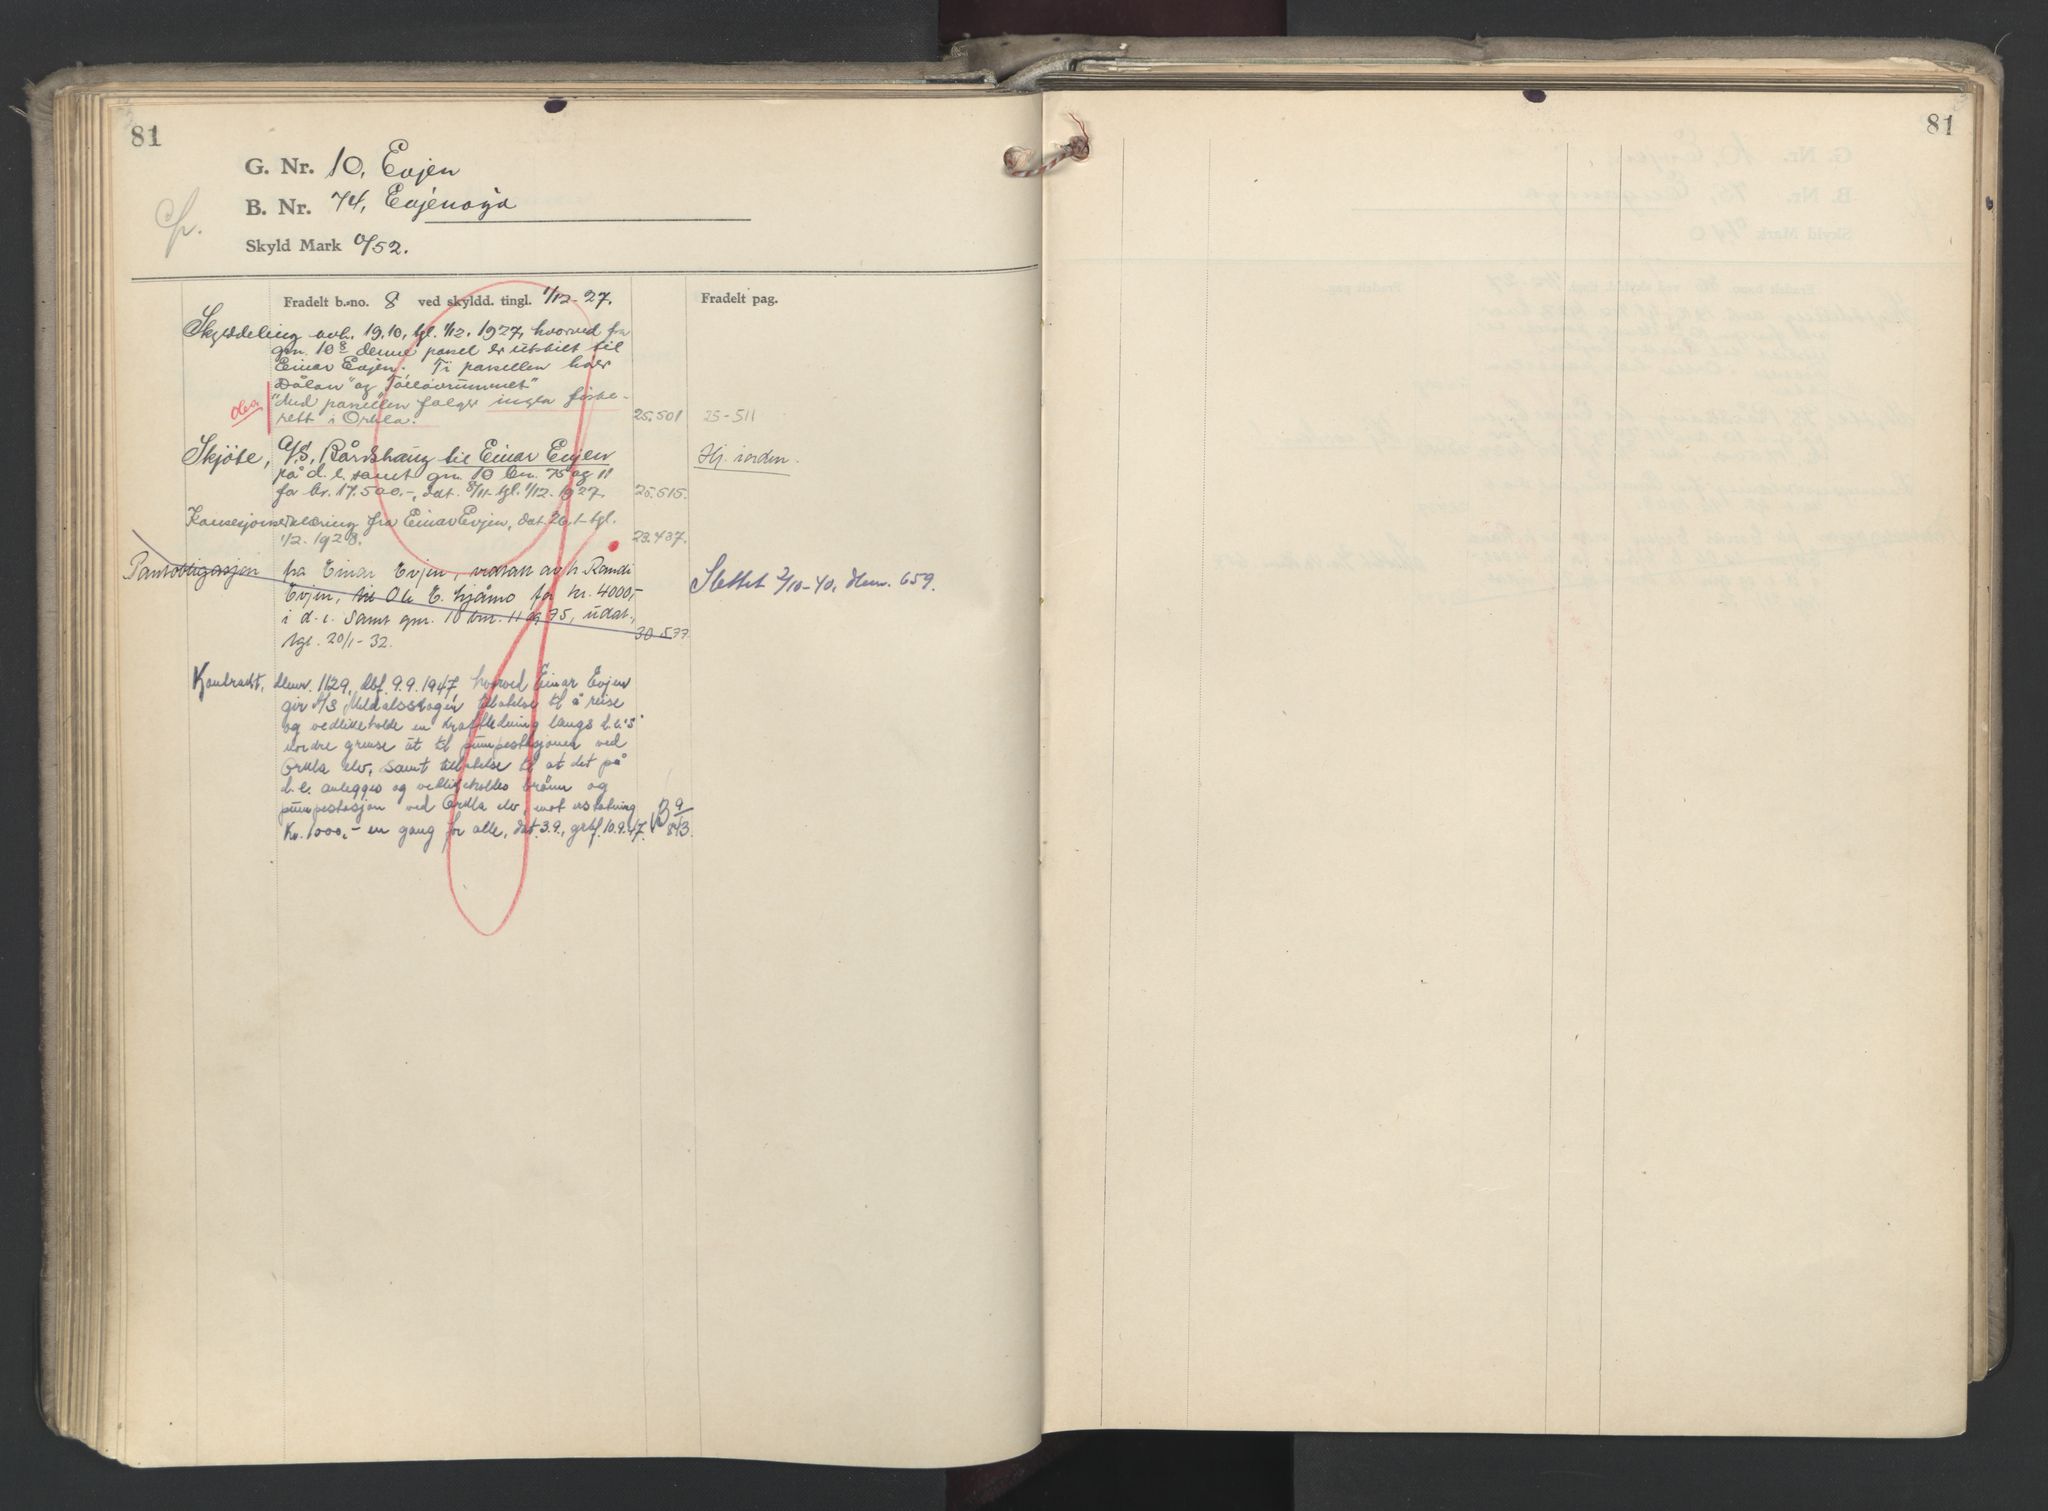 81
G. Nr. 10, Evjen
B. Nr. 74, Evjenøya
Skyld Mark 0/52.
Fradelt b.-no. 8 ved skyldd. tingl. 1/12-27.
Fradelt pag.
Skylddeling avh. 19.10, tgl. 1/12. 1927, hvorved fra
gnr. 10 8 denne parsel er utskilt til
Einar Evjen. Til parsellen hører
"Med parsellen følger ingen fiske-
rett i Orkla." 25.501 25-511
obs.
Skjöte, A/S, Bårdshaug til Einar Evjen Hj. jorden.
på d. e. samt gnr. 10 bnr. 75 og 11
for kr. 17.500.-, dat. 8/11- tgl. 1/12. 1927. 25.515.
Konsesjonserklæring fra Einar Evjen, dat. 26.1- tgl.
1/2. 1928. 23.437.
Pantobligasjon fra Einar Evjen, vedtatt av h. Randi
Evjen, til Oli E. for kr. 4000,-
i d. e. samt gnr. 10 bnr. 11 og 75, udat.,
tgl. 20/1-32. 30.577
Slettet 2/10-40, dbnr. 659.
Kontrakt, dbnr. 1129, dbf. 9.9.1947, hvorved Einar Evjen
gir A/S Meldalsskogen tillatelse til å reise
og vedlikeholde en kraftledning langs d.e.'s
nordre grense ut til pumpestasjonen ved
Orkla elv, samt tillatelse til at det på
d.e. anlegges og vedlikeholdes brønn og
pumpestasjon ved Orkla elv, mot erstatning
Kr. 1000,- en gang for alle, dat. 3.9., grbf. 10.9.47. B 9/843.
81